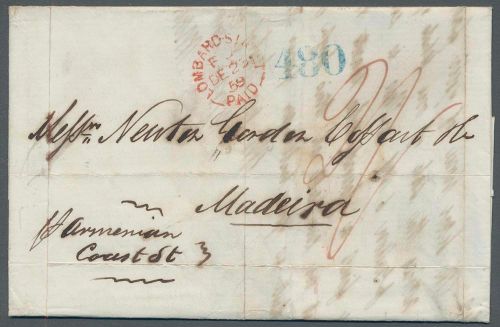 LOMBARD ST
DE 23
59
PAID
480
Messrs Newton Gordon Cossart &c
Madeira
p Armenian
Coast St